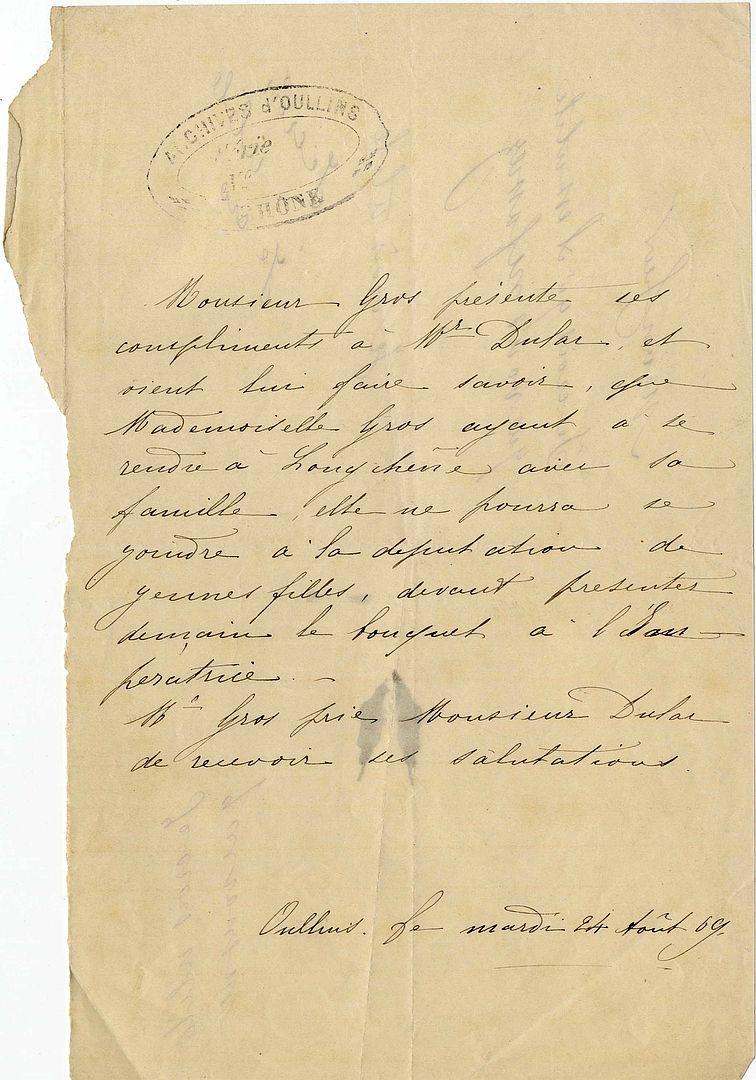 ARCHIVES d'OULLINS
RHÔNE
Monsieur Gros présente ses
compliments à Mr Dular, et
vient lui faire savoir, que
Mademoiselle Gros ayant à se
rendre à Longchêne avec sa
famille, elle ne pourra se
joindre à la députation de
jeunes filles, devant présenter
demain le bouquet à l'Im-
pératrice. -
Mr Gros prie Monsieur Dular
de recevoir ses salutations.
Oullins. Le mardi 24 Août 69.